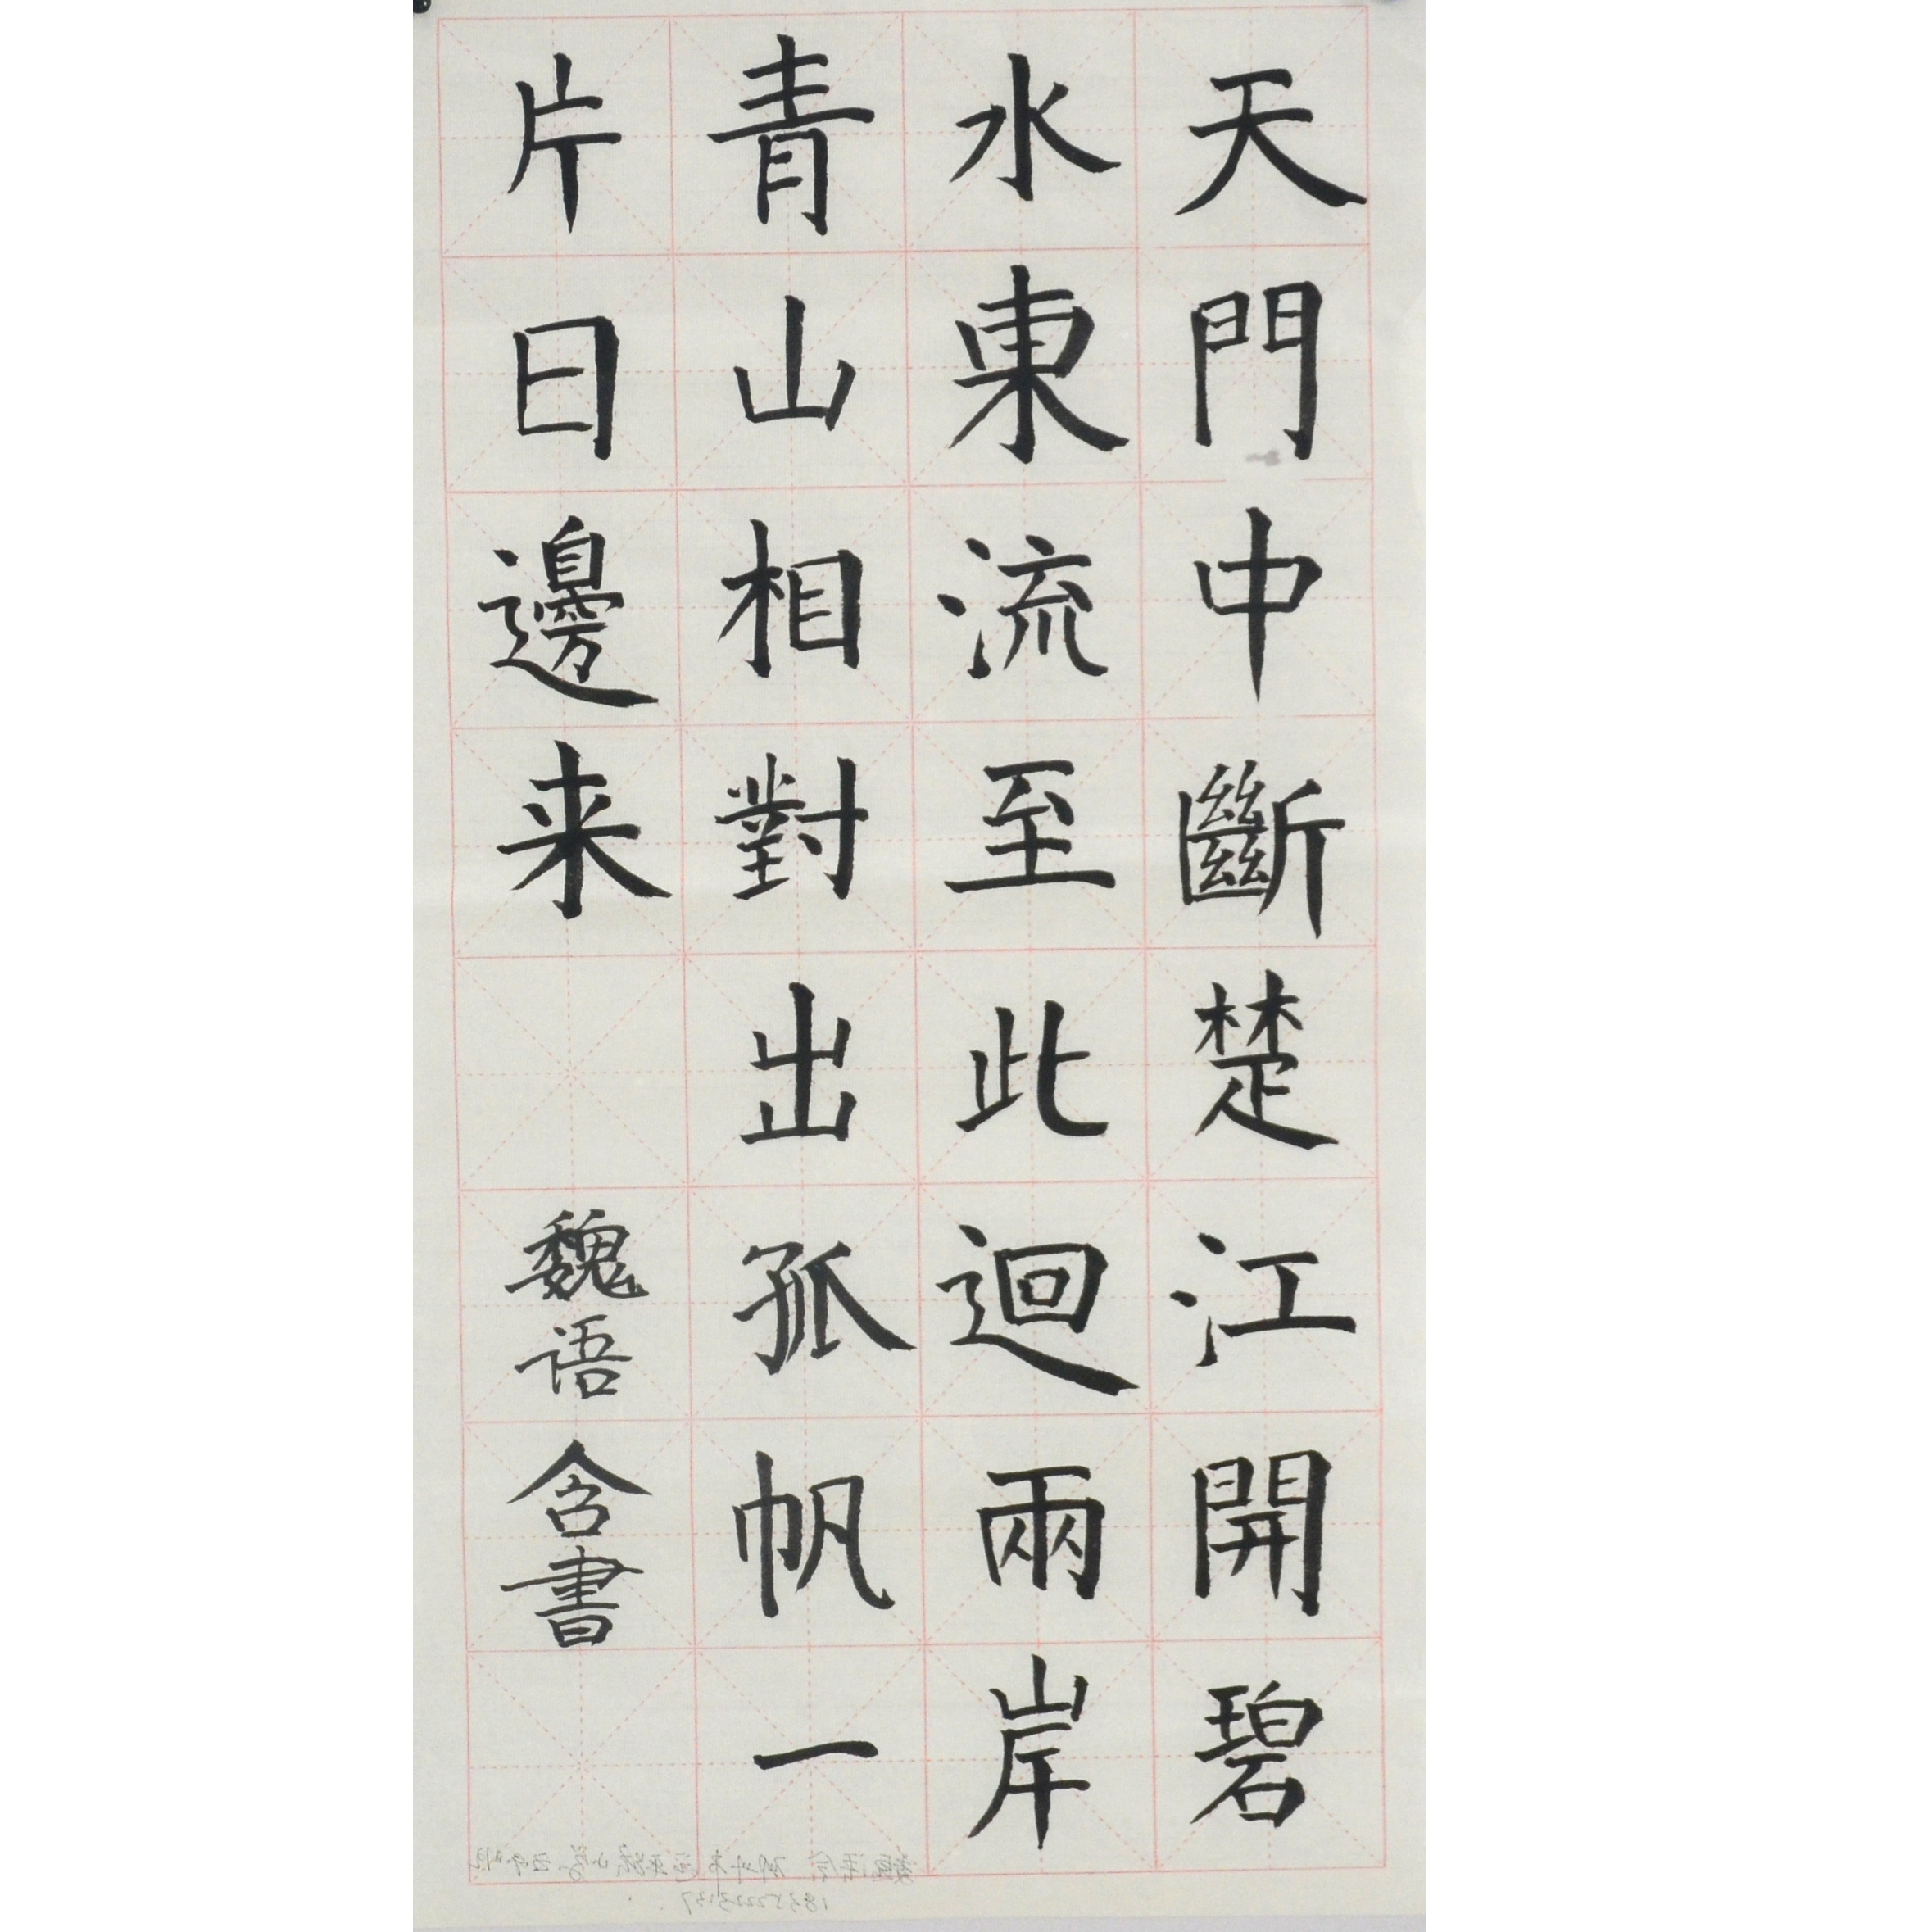 天門中斷楚江開碧
水東流至此迴兩岸
青山相對出孤帆一
片日邊来
魏语含書